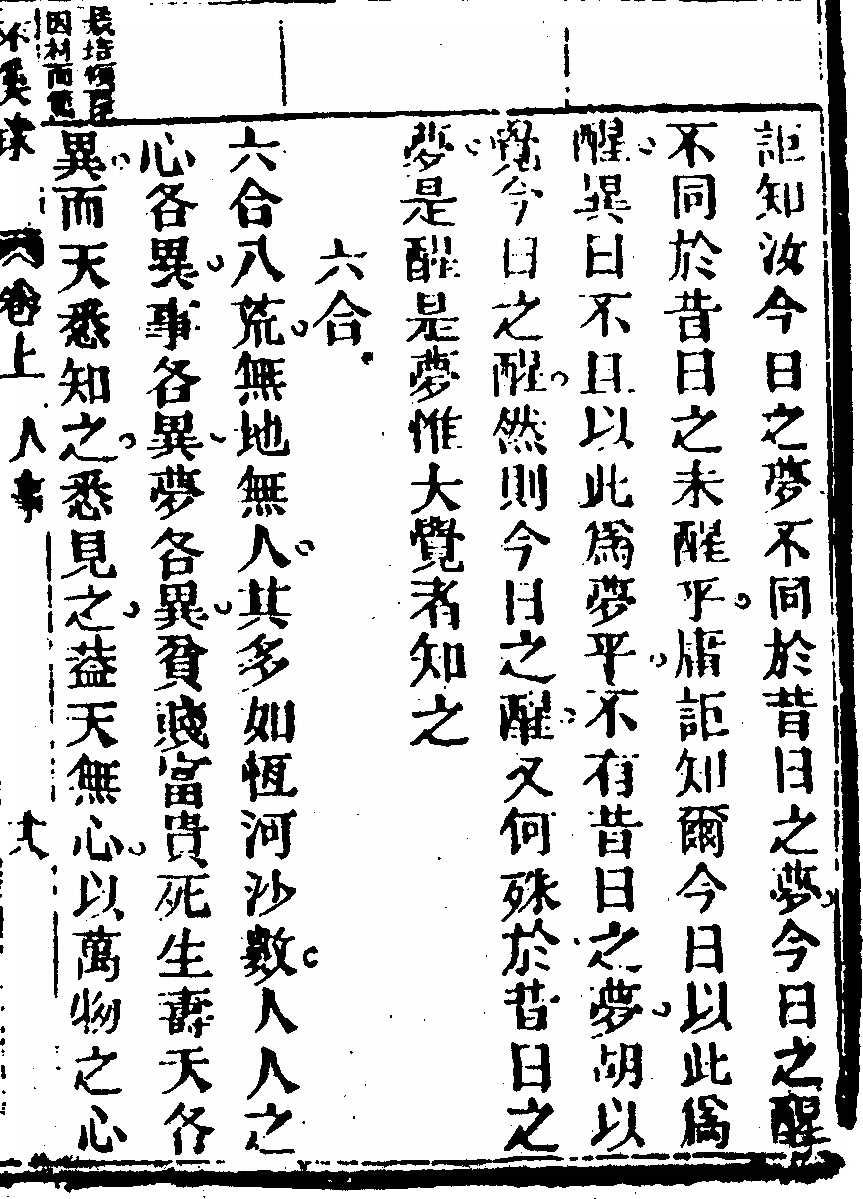 詎知汝今日之夢不同於昔日之夢今日之醒
不同於昔日之未醒乎庸詎知爾今日以此為
醒異日不且以此為夢乎不有昔日之夢胡以
覺今日之醒然則今日之醒又何殊於昔日之
夢是醒是夢惟大覺者知之
六合
六合八荒無地無人其多如恆河沙數人人之
心各異事各異夢各異貧賤富貴死生壽夭各
異而天悉知之悉見之葢天無心以萬物之心
栽培傾覆
因材而篤
卷上 人事